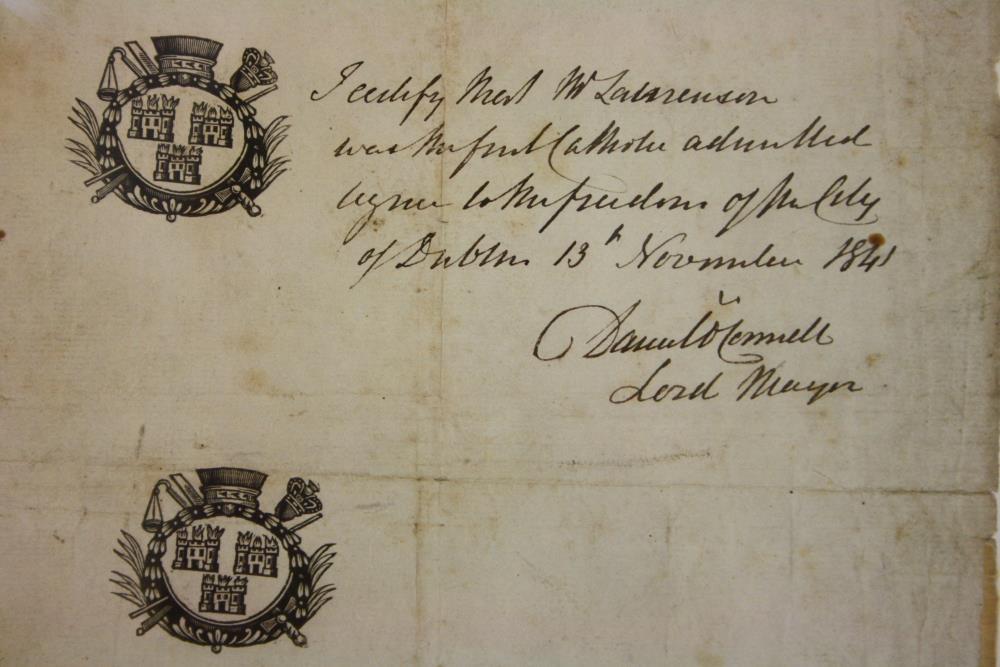 I certify that Mr Lawrenson
was the first Catholic admitted
by me to the freedom of the City
of Dublin 13th November 1841
Daniel O'Connell
Lord Mayor